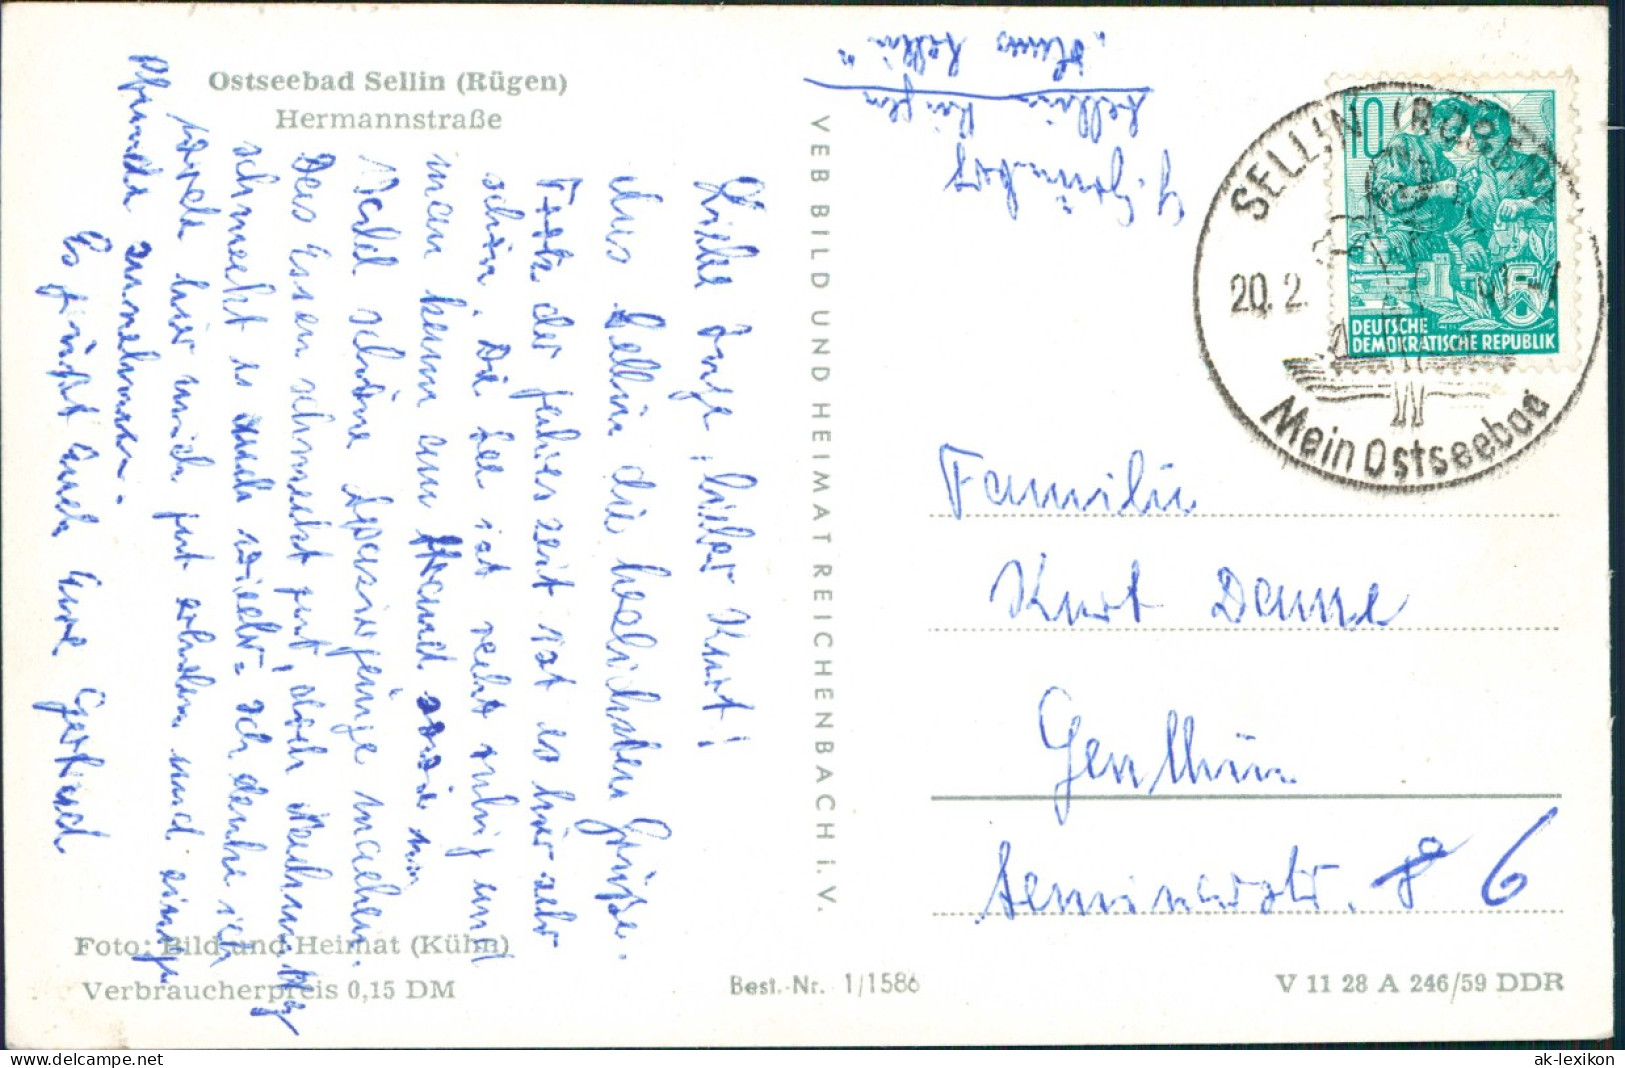 Ostseebad Sellin (Rügen)
Hermannstraße
Liebe Inge, lieber Kurt!
Aus Sellin die herzlichsten Grüße.
Trotz der Jahreszeit ist es hier sehr
schön. Die See ist recht ruhig und
man kann am Strand sowie im
Wald schöne Spaziergänge machen.
Das Essen schmeckt gut, doch
schmeckt es auch wieder. Ich denke ich
werde hier mich gut erholen und einige
Pfunde zunehmen.
Es grüßt Euch Eure Gertrud
VEB BILD UND HEIMAT REICHENBACH i. V.
Sellin Rügen
"Haus Sellin"
SELLIN (RÜGEN)
20. 2.
Mein Ostseebad
10
5
DEUTSCHE
DEMOKRATISCHE REPUBLIK
Familie
Kurt
Genthin
Seminarstr. 6
Foto: Bild und Heimat (Kühn)
Verbraucherpreis 0,15 DM
Best.-Nr. 1/1586
V 11 28 A 246/59 DDR
ak-lexikon